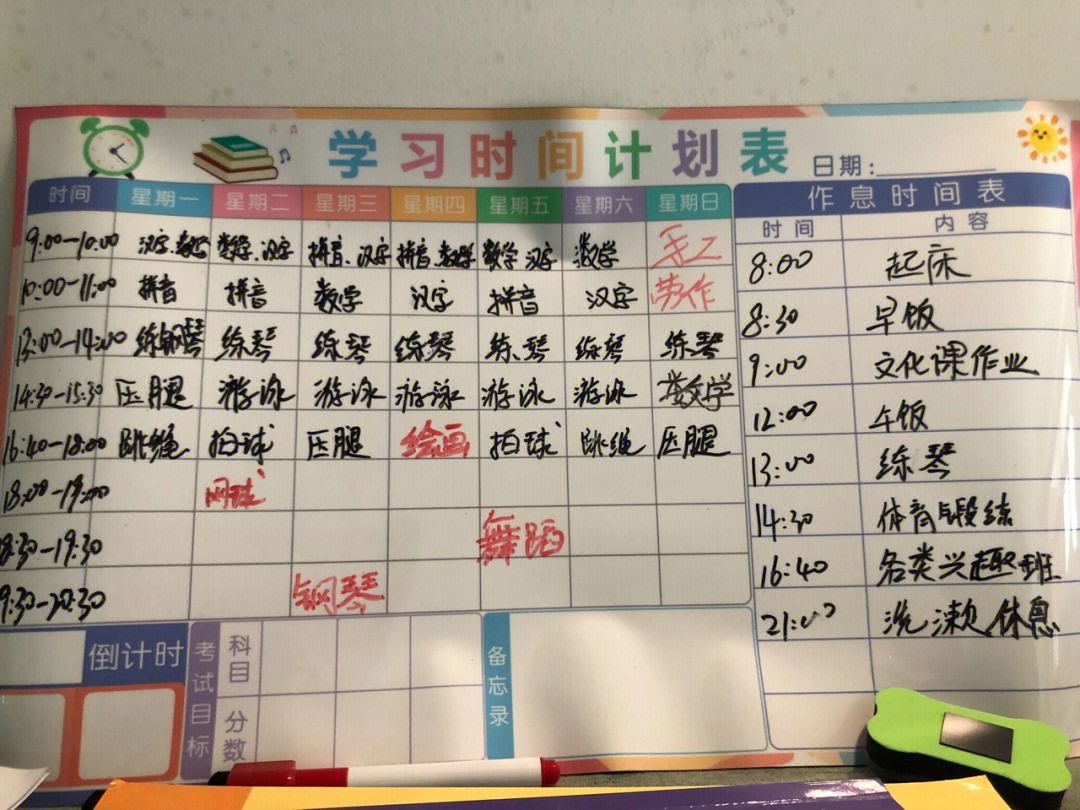 学习时间计划表
日期:
时间 星期一 星期二 星期三 星期四 星期五 星期六 星期日
9:00-10:00 汉字、数学 数学、汉字 拼音、汉字 拼音、数学 数学 汉字 数学 手工
10:00-11:00 拼音 拼音 数学 汉字 拼音 汉字 劳作
13:00-14:00 练钢琴 练琴 练琴 练琴 练琴 练琴 练琴
14:30-15:30 压腿 游泳 游泳 游泳 游泳 游泳 数学
16:40-18:00 跳绳 拍球 压腿 绘画 拍球 跳绳 压腿
18:00-19:00 网球
8:30-19:30 舞蹈
9:30-20:30 钢琴
作息时间表
时间 内容
8:00 起床
8:30 早饭
9:00 文化课作业
12:00 午饭
13:00 练琴
14:30 体育锻练
16:40 各类兴趣班
21:00 洗漱休息
倒计时
考试目标
科目
分数
备忘录